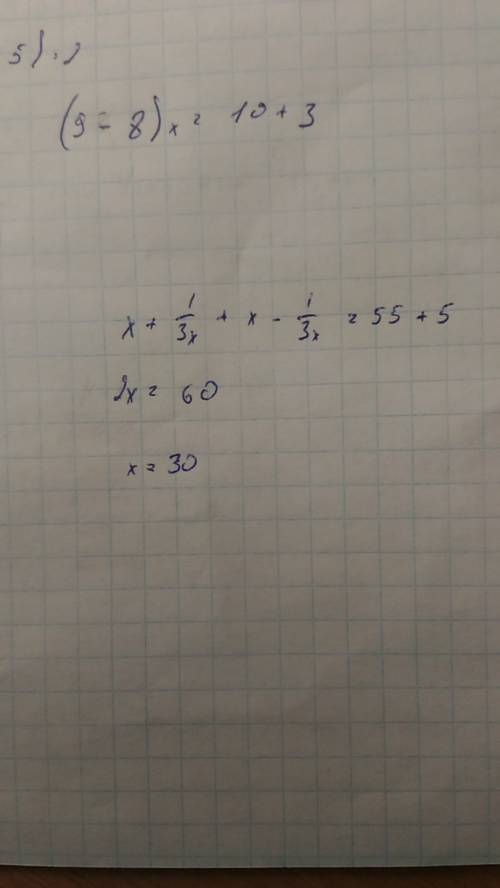 5) . 2
(9 - 8) x = 10 + 3
x + 1/3x + x - 1/3x = 55 + 5
2x = 60
x = 30